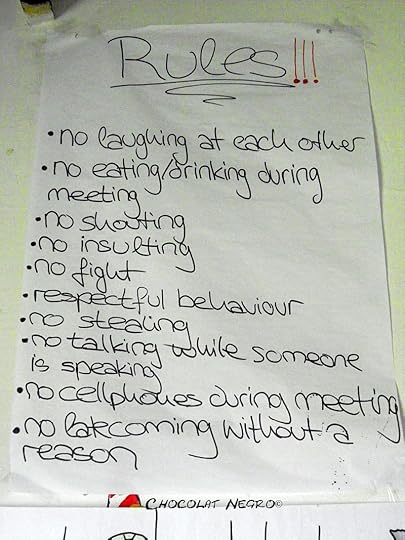 Rules!!!
• no laughing at each other
• no eating/drinking during
meeting
• no shouting
• no insulting
• no fight
• respectful behaviour
• no stealing
• no talking while someone
is speaking
• no cellphones during meeting
• no latecoming without a
reason
CHOCOLAT NEGRO©